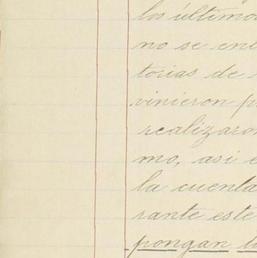 los último
no se en
torias de
vinieron p
realizaron
mo, asi e
la cuenta
rante este
pongan